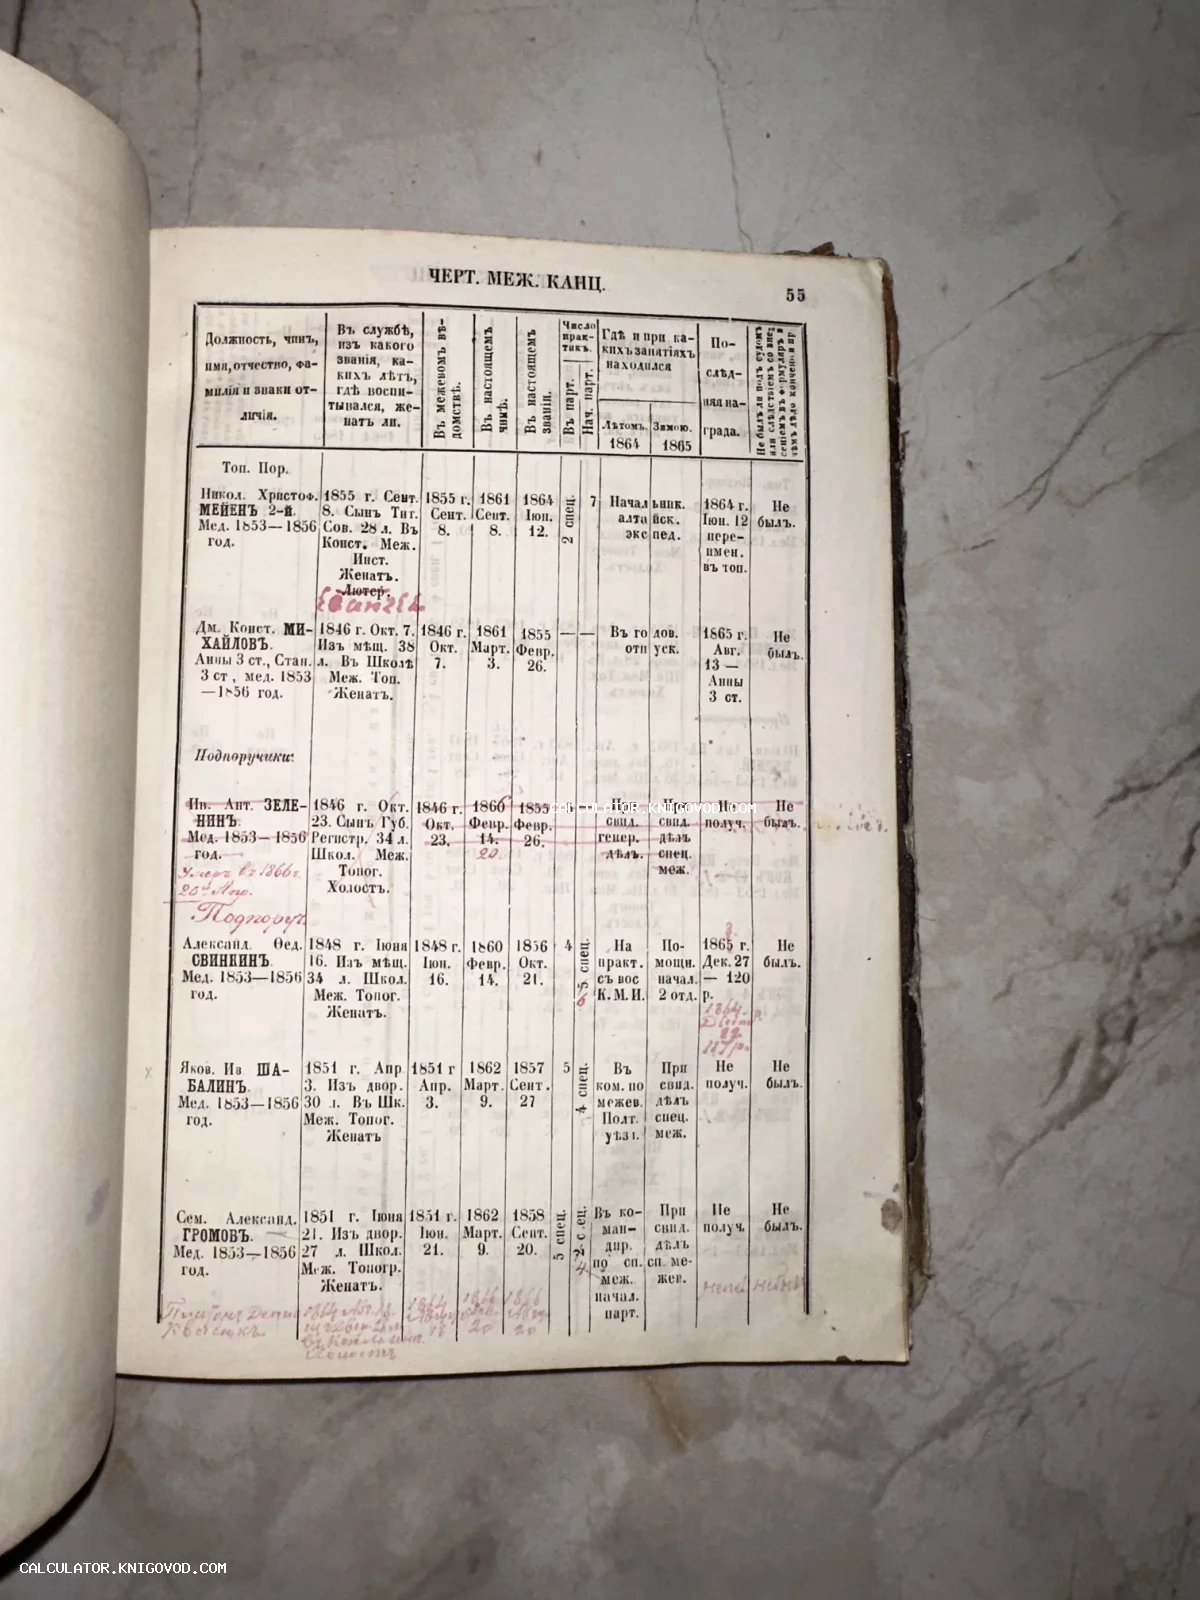 ЧЕРТ. МЕЖ. КАНЦ.
55
Должность, чинъ,
имя, отчество, фа-
милія и знаки от-
личія.
Въ службѣ,
изъ какого
званія, ка-
кихъ лѣтъ,
гдѣ воспи-
тывался, же-
натъ ли.
Въ межевомъ вѣ-
домствѣ.
Въ настоящемъ
чинѣ.
Въ настоящемъ
званіи.
Число
прак-
тикъ.
Въ парт.
Нач. парт.
Гдѣ и при ка-
кихъ занятіяхъ
находился
Лѣтомъ.
1864
Зимою.
1865
По-
слѣд-
няя на-
града.
Топ. Пор.
Никол. Христоф.
МЕЙЕНЪ 2-й.
Мед. 1853—1856
год.
1855 г. Сент.
8. Сынъ Тит.
Сов. 28 л. Въ
Конст. Меж.
Инст.
Женатъ.
Лютер.
1855 г.
Сент.
8.
1861
Сент.
8.
1864
Іюн.
12.
2 спец.
7
Начальник.
алтайск.
экспед.
1864 г.
Іюн. 12
пере-
имен.
въ топ.
Не
былъ.
Дм. Конст. МИ-
ХАЙЛОВЪ.
Анны 3 ст., Стан.
3 ст, мед. 1853
—1856 год.
1846 г. Окт. 7.
Изъ мѣщ. 38
л. Въ Школѣ
Меж. Топ.
Женатъ.
1846 г.
Окт.
7.
1861
Март.
3.
1855
Февр.
26.
— —
Въ голов.
отпуск.
1865 г.
Авг.
13 —
Анны
3 ст.
Не
былъ.
Подпоручики:
Ив. Ант. ЗЕЛЕ-
НИНЪ.
Мед. 1853—1856
год.
Умеръ въ 1866 г.
Подпоруч
1846 г. Окт.
23. Сынъ Губ.
Регистр. 34 л.
Школ. Меж.
Топог.
Холостъ.
1846 г.
Окт.
23.
1860
Февр.
14.
20
1855
Февр.
26.
При
свид.
генер.
дѣлъ.
При
свид.
дѣлъ
спец.
меж.
Не
получ.
Не
былъ.
Александ. Ѳед.
СВИНКИНЪ.
Мед. 1853—1856
год.
1848 г. Іюня
16. Изъ мѣщ.
34 л. Школ.
Меж. Топог.
Женатъ.
1848 г.
Іюн.
16.
1860
Февр.
14.
1856
Окт.
21.
4
5 спец.
6
На
практ.
съ вос
К. М. И.
По-
мощн.
начал.
2 отд.
1865 г.
Дек. 27
— 120
р.
1864
Не
былъ.
Яков. Ив ША-
БАЛИНЪ.
Мед. 1853—1856
год.
1851 г. Апр
3. Изъ двор.
30 л. Въ Шк.
Меж. Топог.
Женатъ
1851 г
Апр.
3.
1862
Март.
9.
1857
Сент.
27
5
4 спец.
Въ
ком. по
межев.
Полт.
уѣзд.
При
свид.
дѣлъ
спец.
меж.
Не
получ.
Не
былъ.
Сем. Александ.
ГРОМОВЪ.
Мед. 1853—1856
год.
1851 г. Іюня
21. Изъ двор.
27 л. Школ.
Меж. Топогр.
Женатъ.
1851 г.
Іюн.
21.
1862
Март.
9.
1858
Сент.
20.
5 спец.
4
Въ ко-
ман-
дир.
по сп.
меж.
начал.
парт.
При
свид.
дѣлъ
сп. ме-
жев.
Не
получ.
Не
былъ.
Холостъ
20
20
CALCULATOR.KNIGOVOD.COM
CALCULATOR.KNIGOVOD.COM